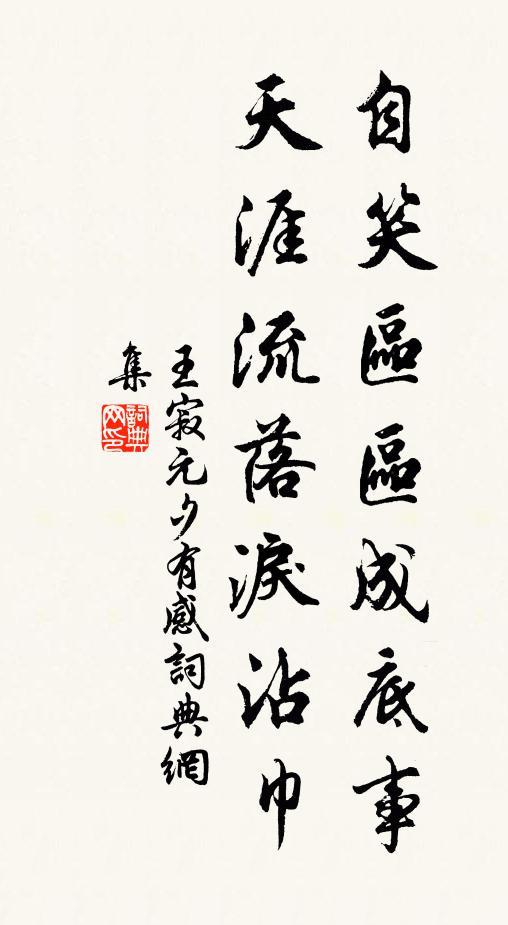 自笑區區成底事
天涯流落淚沾巾
王寂元夕有感詞典網
集
詞典网印